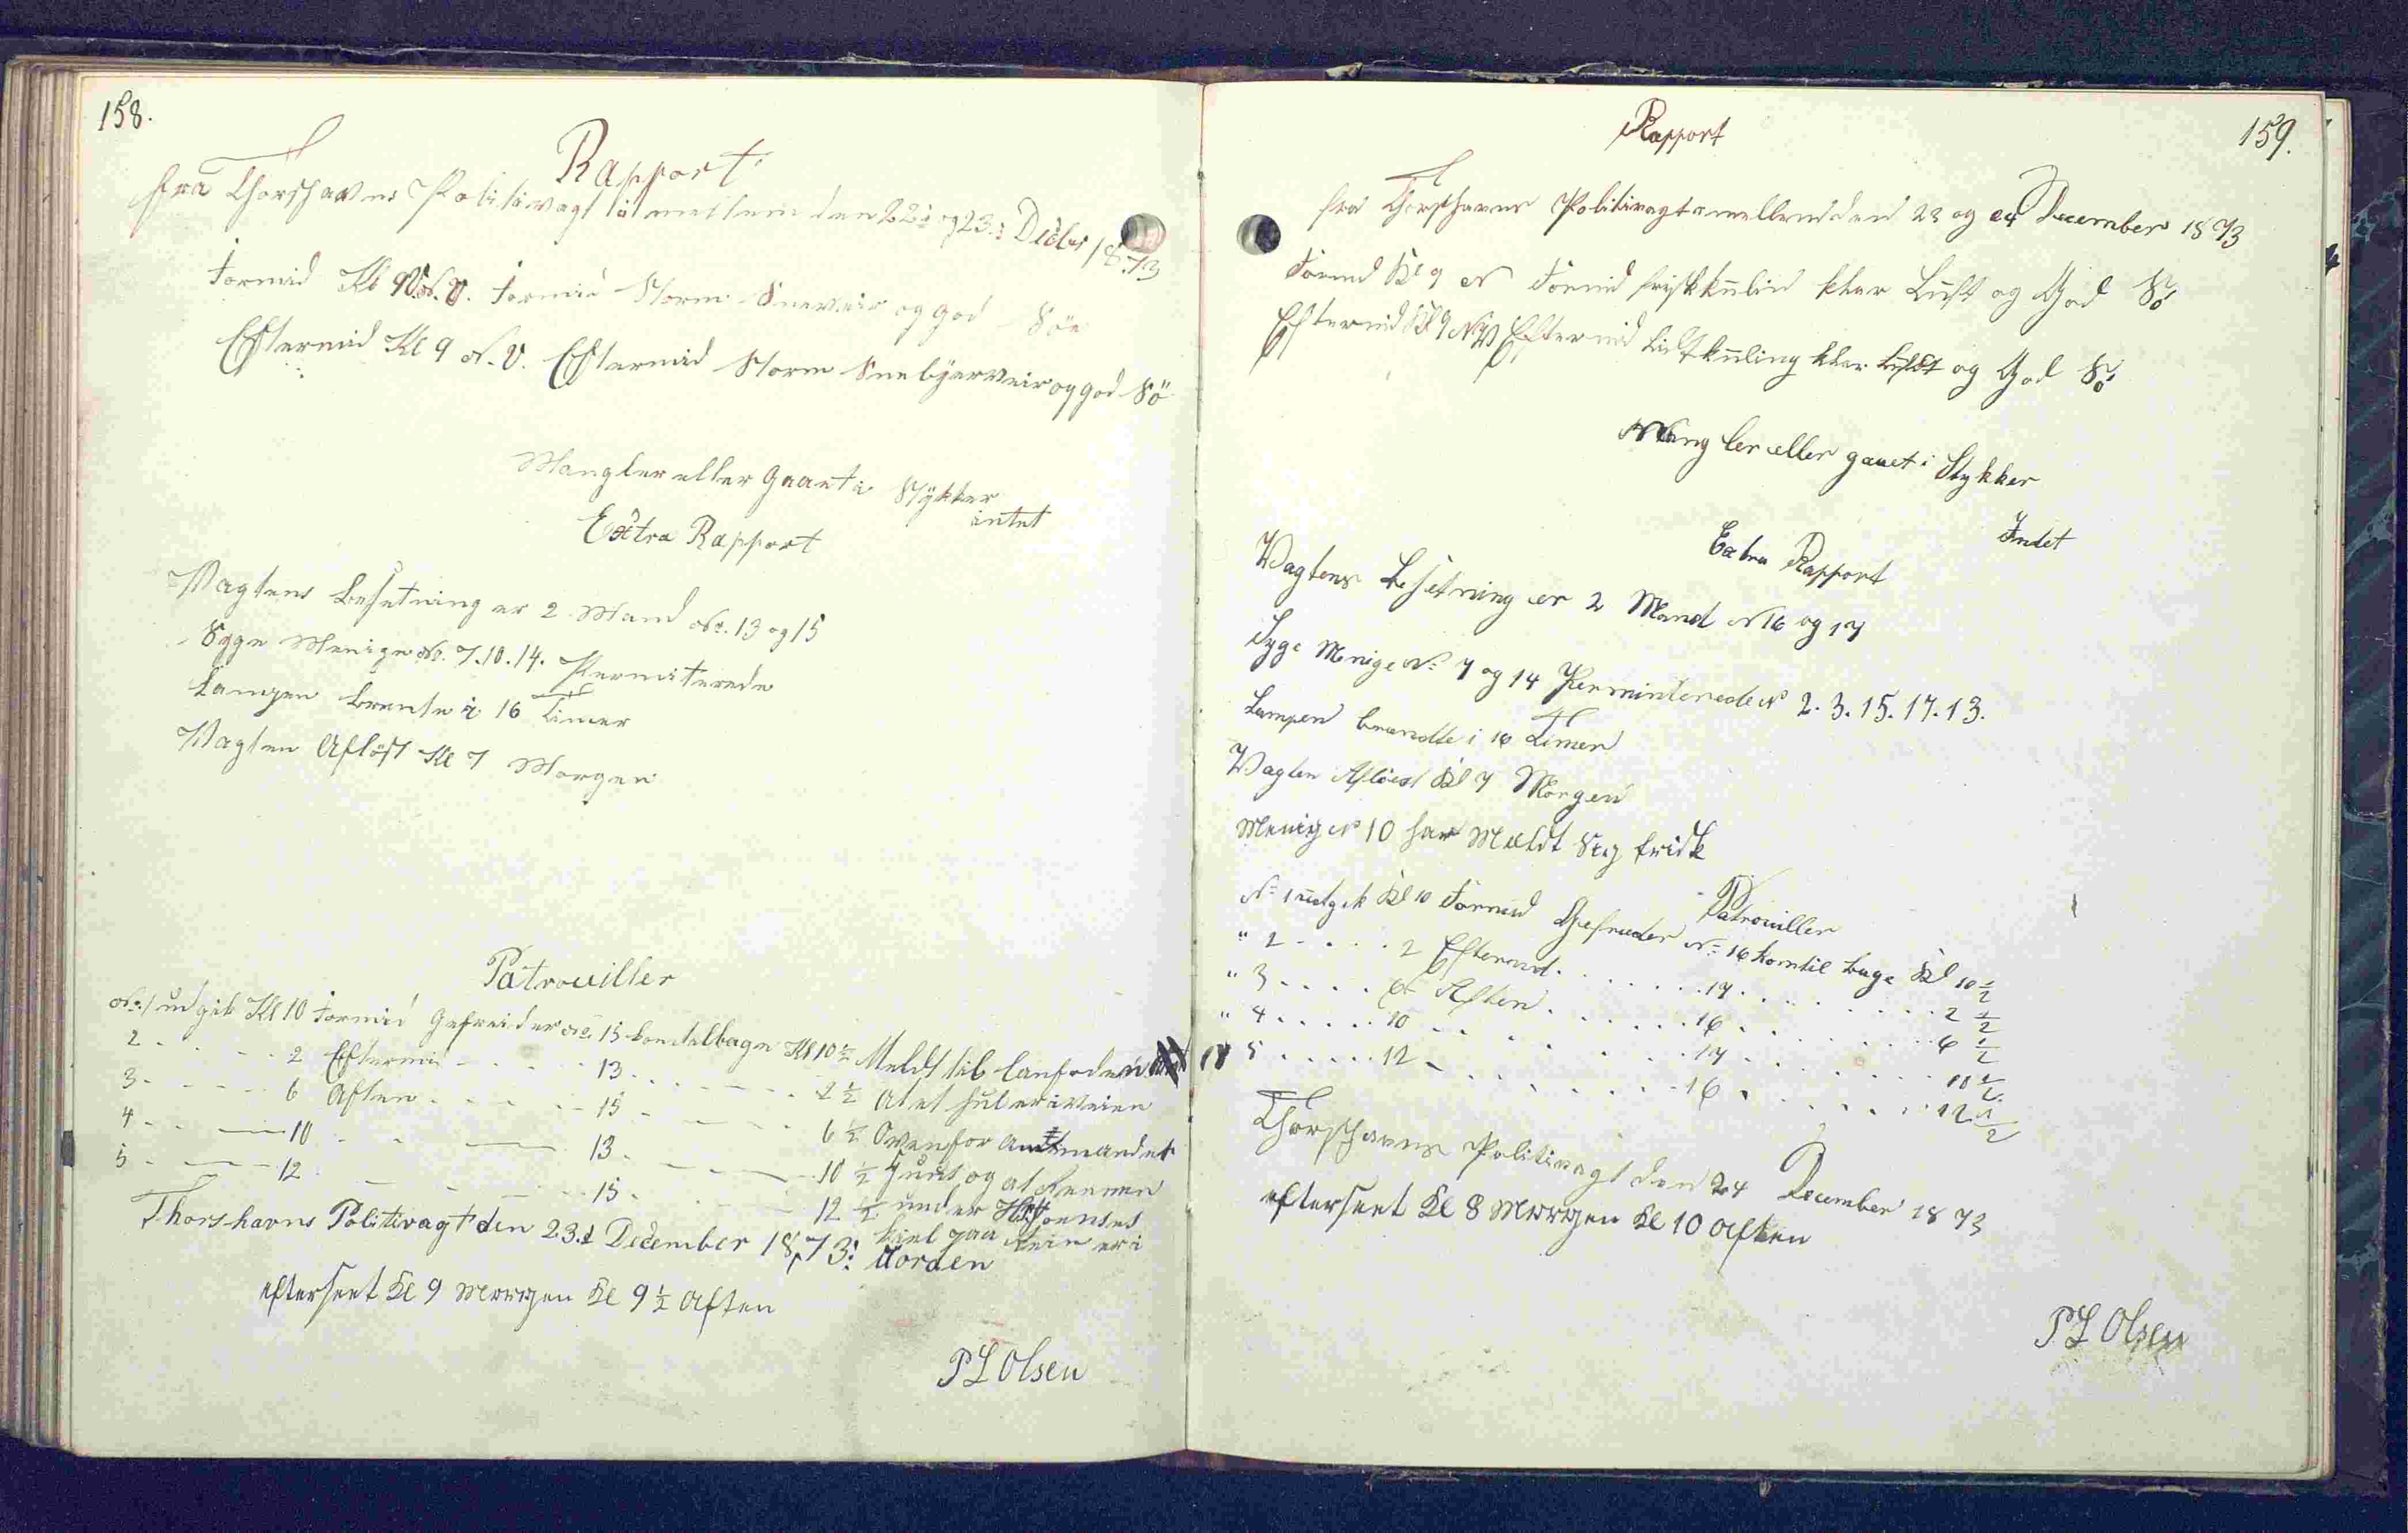 158.
Rapport
fra Thorshavns Politivagt imellem den 22: og 23: Decbr 1873
Formid Kl 9 N.V. Formid Storm Sneveir og god Söe
Eftermid Kl 9 N.V. Eftermid Storm Snebygerveir og god Sö
Mangler eller Gaaet i Stykker
intet
Extra Rapport
Vagtens Besetning er 2 Mand No. 13 og 15
Syge Menige No. 7.10.14. Permiterede
Lampen brente i 16 Timer
Vagten Aflöst Kl 7 Morgen
Patrouiller
No: 1 udgik Kl 10 Formid Gefreider No. 15 kom tilbage Kl 10 ½ Meldt til
2 - - - 2 Eftermid - - - 13 - - - 2 ½ At et hul er i veien
3 - - - 6 Aften - - - 15 - - - 6 ½ Ovenfor Amtmandet
4 - - - 10 - - - 13 - - - 10 ½ og at Rennen
5 - - - 12 - - - 15 - - - 12 ½ under
er i
Uorden
Thorshavns Politivagt den 23.d December 1873:
efterseet Kl 9 Morgen Kl 9 ½ Aften
P L Olsen
159.
Rapport
fra Thorshavns Politivagt imellem den 23 og 24 December 1873
Formd Kl 9 N Formid friskkuling klar Luft og God Sö
Eftermid Kl 9 NW Eftermid Lidtkuling klar Luft og God Sö
Mangler eller gaaet i Stykker
Indet
Extra Rapport
Wagtens Besetning er 2 Mand N 16 og 17
Syge Menige No: 7 og 14 Perminterede No 2. 3. 15. 17. 13.
Lampen brændte i 16 Timer
Wagten Aflöest Kl 7 Morgen
Menig No 10 har Mældt Sig fridsk
Patrouiller
No: 1 udgik Kl 10 Formid Gefreider No: 16 kom til bage Kl 10 ½
" 2 - - - 2 Eftermid - - - 17 - - - 2 ½
" 3 - - - 6 Aften - - - 16 - - - 6 ½
" 4 - - - 10 - - - 17 - - - 10 ½
" 5 - - - 12 - - - 16 - - - 12 ½
Thorshavns Politivagt den 24 December 1873
efterseet Kl 8 Morgen Kl 10 Aften
P L Olsen